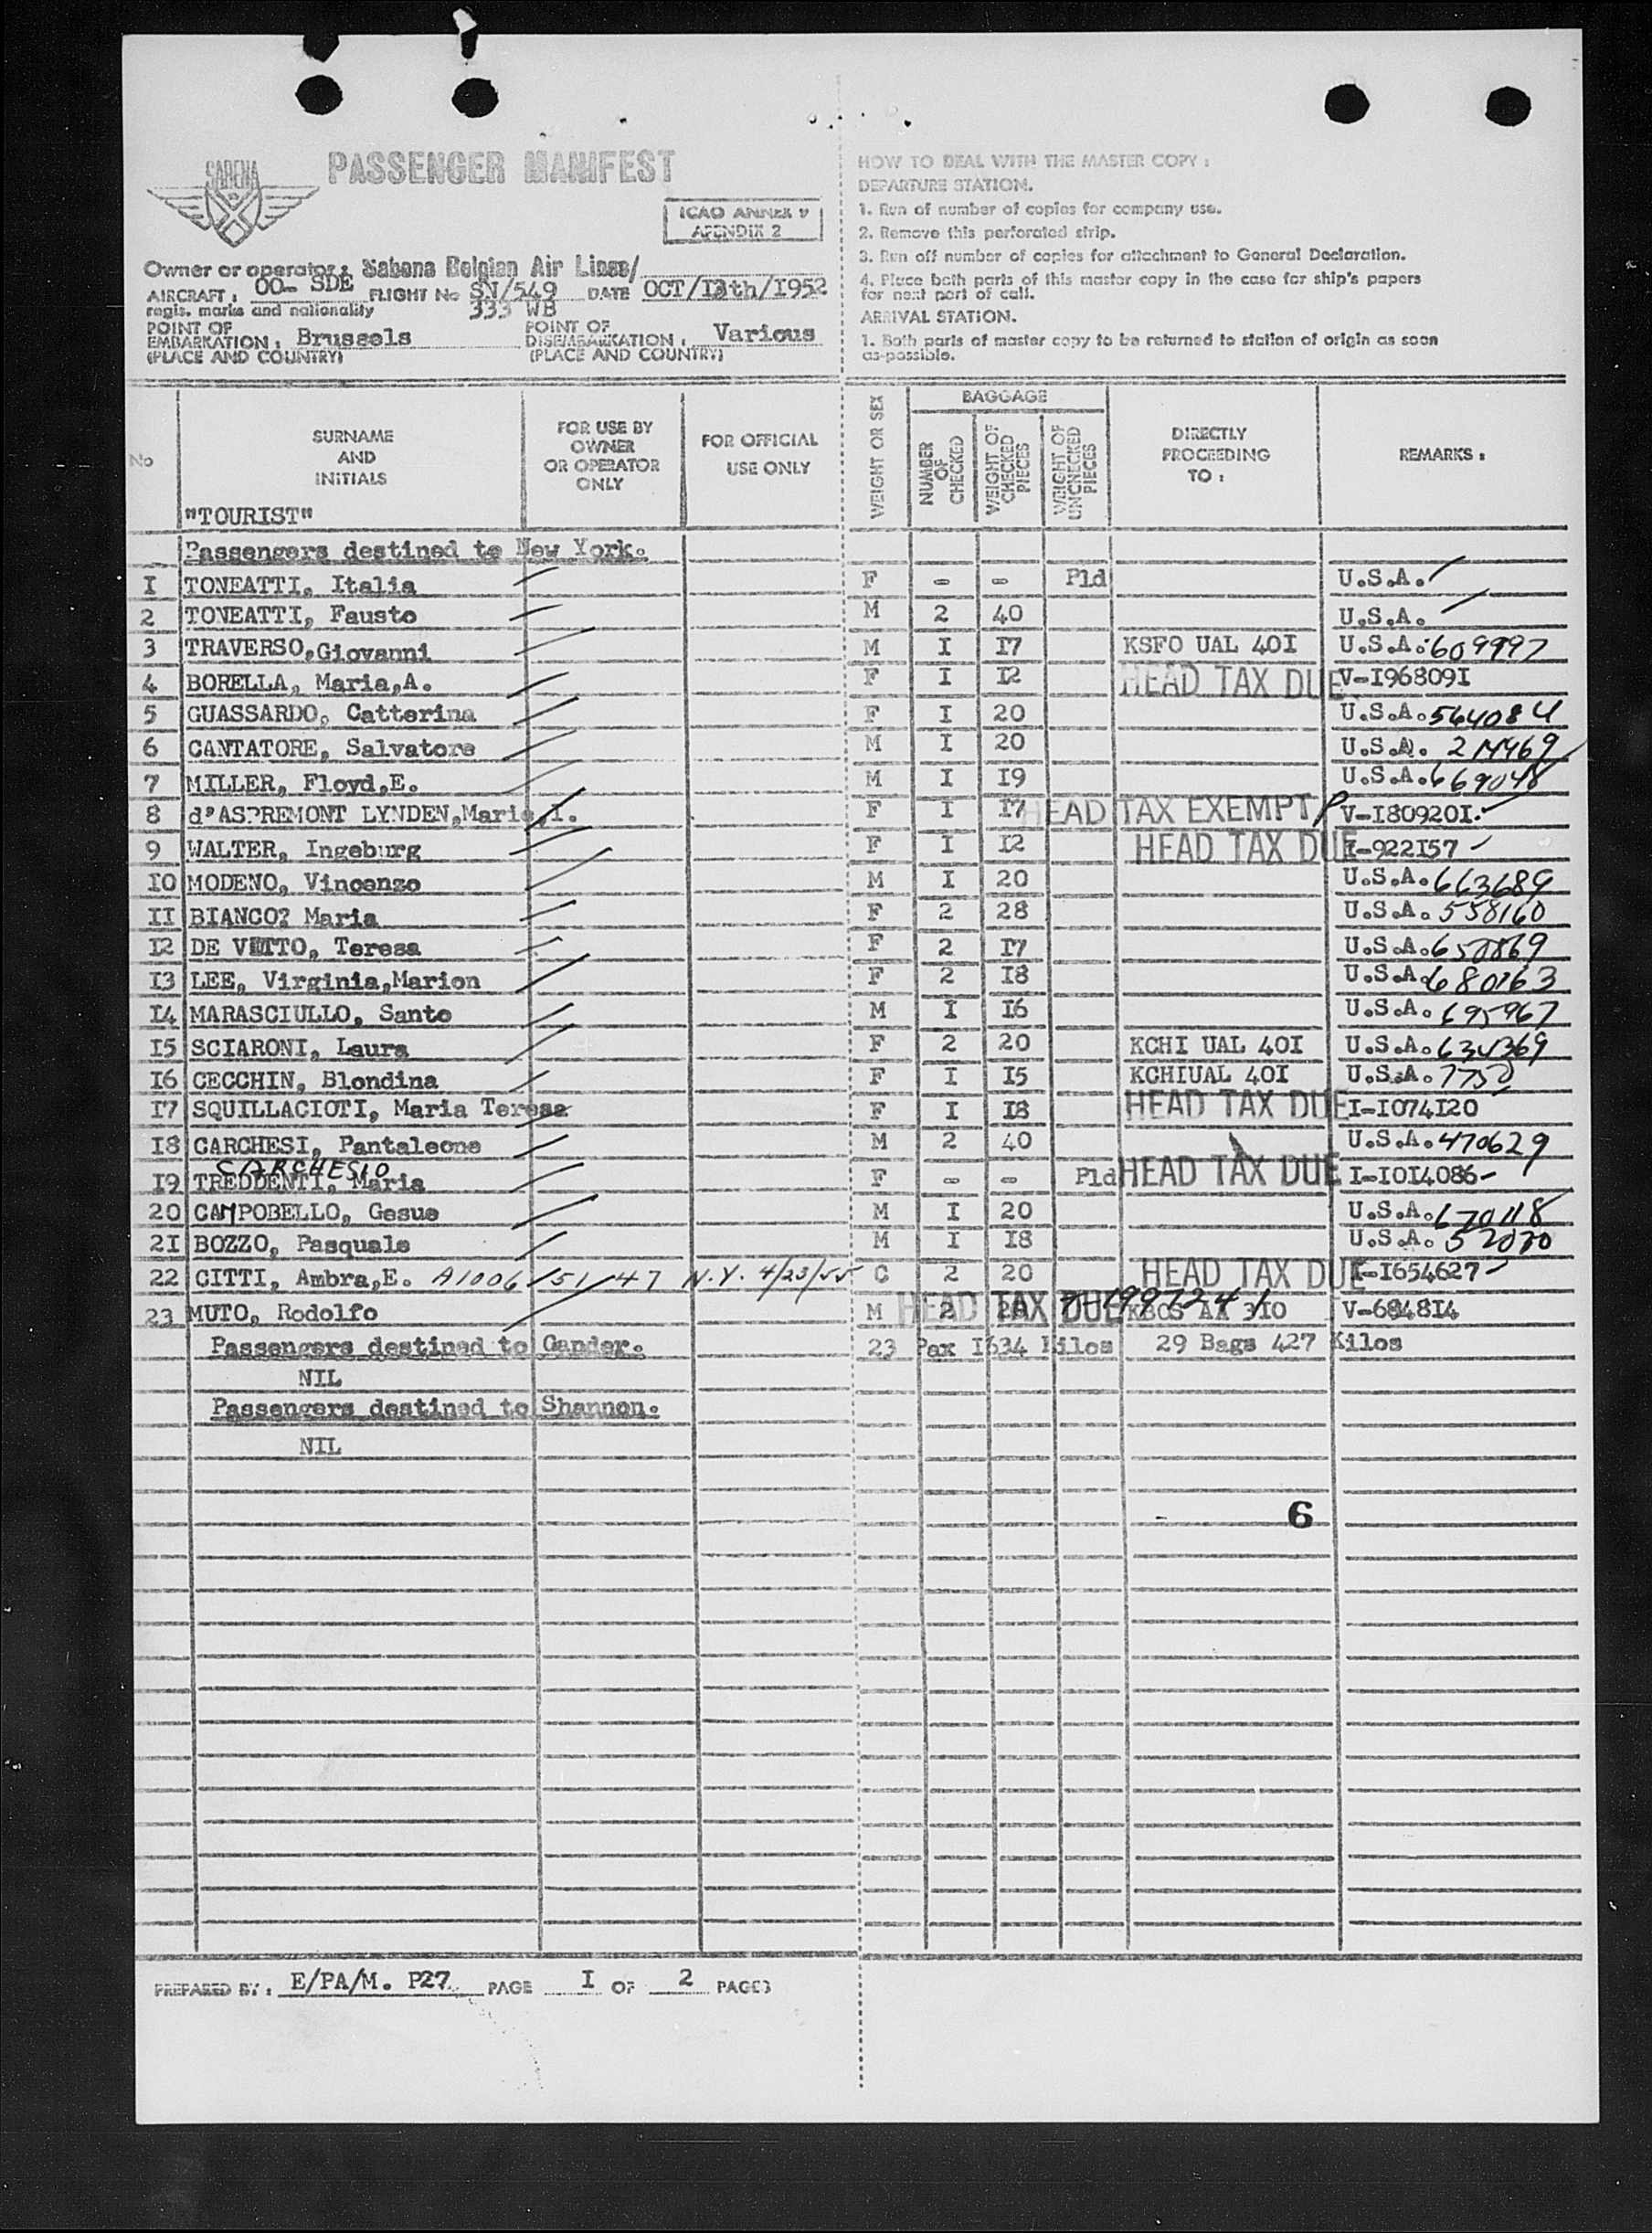 SABENA
PASSENGER MANIFEST
ICAO ANNEX 9
APENDIX 2
Owner or operator: Sabena Belgian Air Lines/
AIRCRAFT: OO- SDE FLIGHT No SN/549 DATE OCT/13th/I952
regis. marks and nationality 333 WB
POINT OF EMBARKATION: Brussels POINT OF DISEMBARKATION: Various
(PLACE AND COUNTRY) (PLACE AND COUNTRY)
HOW TO DEAL WITH THE MASTER COPY:
DEPARTURE STATION.
1. Run of number of copies for company use.
2. Remove this perforated strip.
3. Run off number of copies for attachment to General Declaration.
4. Place both parts of this master copy in the case for ship's papers
for next port of call.
ARRIVAL STATION.
1. Both parts of master copy to be returned to station of origin as soon
as possible.
No SURNAME AND INITIALS FOR USE BY OWNER OR OPERATOR ONLY FOR OFFICIAL USE ONLY WEIGHT OR SEX BAGGAGE NUMBER OF CHECKED WEIGHT OF CHECKED PIECES WEIGHT OF UNCHECKED PIECES DIRECTLY PROCEEDING TO: REMARKS:
"TOURIST"
Passengers destined to New York.
I TONEATTI, Italia F - - Pld U.S.A.
2 TONEATTI, Fausto M 2 40 U.S.A.
3 TRAVERSO,Giovanni M I I7 KSFO UAL 40I U.S.A. 609997
4 BORELLA, Maria,A. F I I2 HEAD TAX DUE V-I96809I
5 GUASSARDO, Catterina F I 20 U.S.A. 564084
6 CANTATORE, Salvatore M I 20 U.S.A.
7 MILLER, Floyd,E. M I I9 U.S.A. 669048
8 d'ASPREMONT LYNDEN,Marie,I. F I I7 HEAD TAX EXEMPT V-I80920I.
9 WALTER, Ingeburg F I I2 HEAD TAX DUE I-922I57
I0 MODENO, Vincenzo M I 20 U.S.A. 663689
II BIANCO? Maria F 2 28 U.S.A. 558160
I2 DE VITTO, Teresa F 2 I7 U.S.A. 650869
I3 LEE, Virginia,Marion F 2 I8 U.S.A. 680163
I4 MARASCIULLO, Santo M I I6 U.S.A. 695967
I5 SCIARONI, Laura F 2 20 KCHI UAL 40I U.S.A. 634369
I6 CECCHIN, Blondina F I I5 KCHIUAL 40I U.S.A. 7750
I7 SQUILLACIOTI, Maria Teresa F I I8 HEAD TAX DUE I-I074I20
I8 CARCHESI, Pantaleone M 2 40 U.S.A. 470629
CARCHESIO
I9 TREDDENTI, Maria F - - Pld HEAD TAX DUE I-I0I4086
20 CAMPOBELLO, Gesue M I 20 U.S.A. 670118
2I BOZZO, Pasquale M I I8 U.S.A. 52020
22 CITTI, Ambra,E. A1006/51/47 N.Y. 4/23/55 C 2 20 HEAD TAX DUE I-I654627
23 MUTO, Rodolfo M 2 20 HEAD TAX DUE KBOS AA 3I0 V-6848I4
Passengers destined to Gander. 23 Pax I634 Kilos 29 Bags 427 Kilos
NIL
Passengers destined to Shannon.
NIL
6
PREPARED BY: E/PA/M. P27 PAGE I OF 2 PAGES